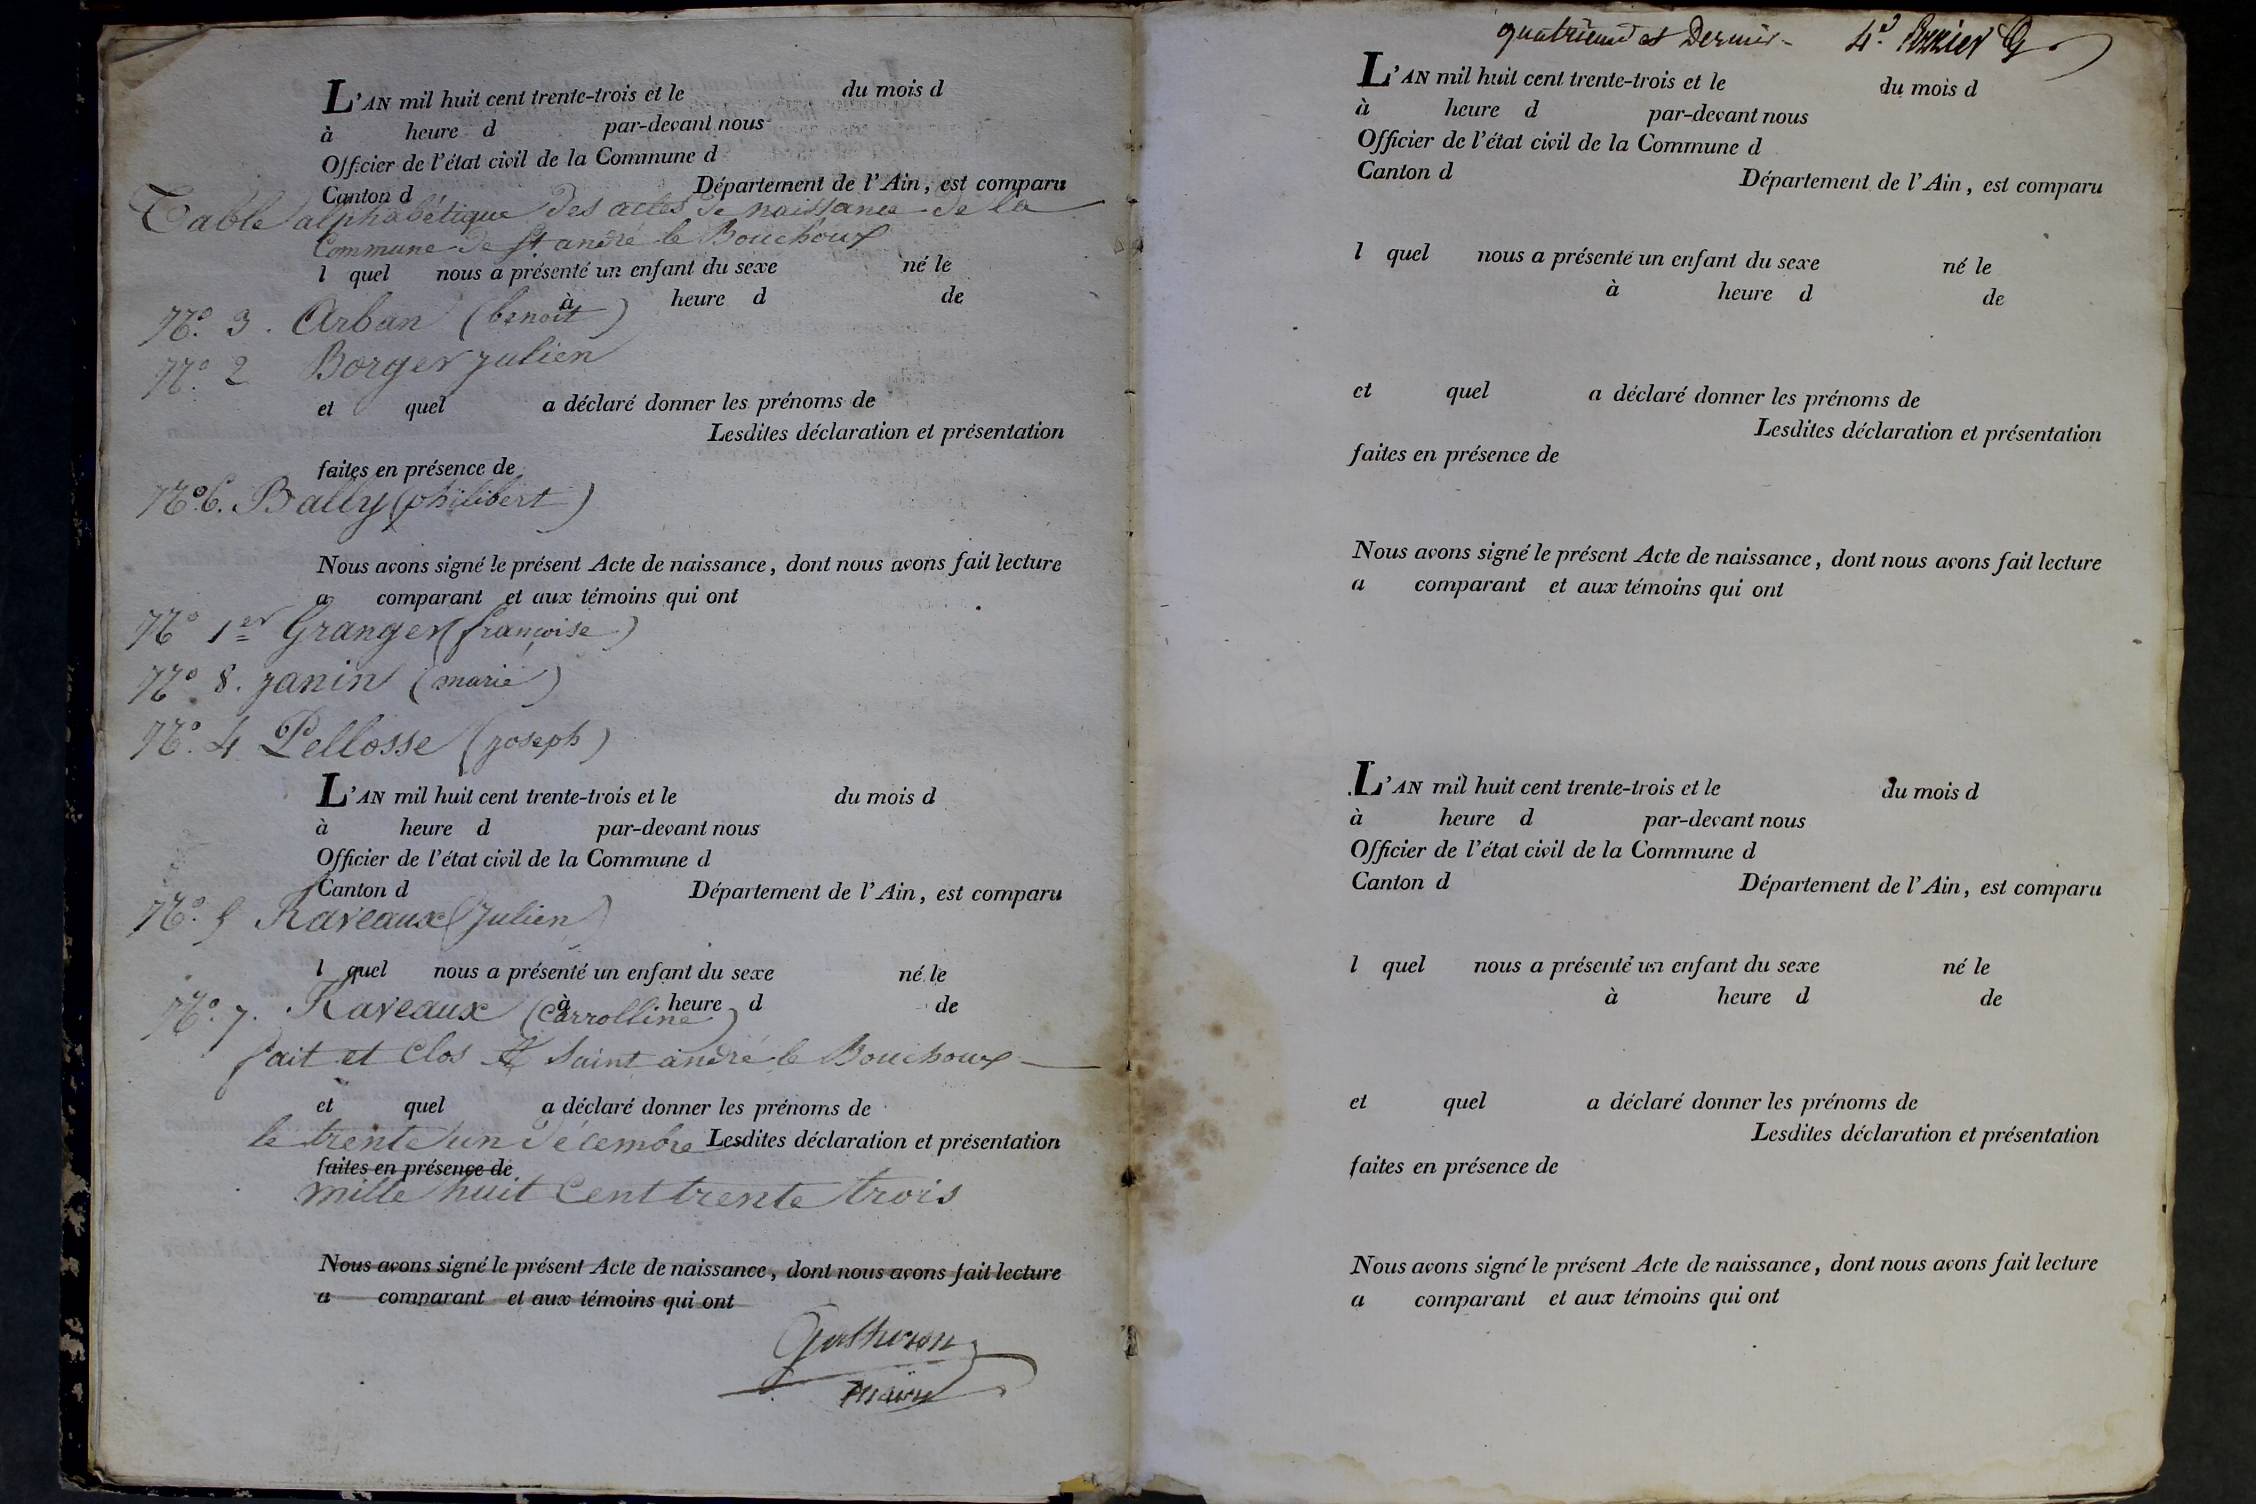 L'AN mil huit cent trente-trois et le du mois d
à heure d par-devant nous
Officier de l'état civil de la Commune d
Canton d Département de l'Ain, est comparu
Table alphabétique des actes de naissance de la
Commune de St andré le Bouchoux
l quel nous a présenté un enfant du sexe né le
à heure d de
No. 3. Arban (benoit)
No. 2 Borger julien
et quel a déclaré donner les prénoms de
Lesdites déclaration et présentation
faites en présence de
No 6. Bally (philibert)
Nous avons signé le présent Acte de naissance, dont nous avons fait lecture
a comparant et aux témoins qui ont
No 1er Granger (françoise)
No 8. janin (marie)
No. 4 Pellosse (joseph)
L'AN mil huit cent trente-trois et le du mois d
à heure d par-devant nous
Officier de l'état civil de la Commune d
Canton d Département de l'Ain, est comparu
No. 5 Raveaux (Julien)
l quel nous a présenté un enfant du sexe né le
à heure d de
No. 7. Raveaux (Carrolline)
fait et Clos à Saint andré le Bouchoux
et quel a déclaré donner les prénoms de
le trente un Décembre Lesdites déclaration et présentation
faites en présence de
mille huit Cent trente trois
Nous avons signé le présent Acte de naissance, dont nous avons fait lecture
a comparant et aux témoins qui ont
maire
quatrieme et Dernier
L'AN mil huit cent trente-trois et le du mois d
à heure d par-devant nous
Officier de l'état civil de la Commune d
Canton d Département de l'Ain, est comparu
l quel nous a présenté un enfant du sexe né le
à heure d de
et quel a déclaré donner les prénoms de
Lesdites déclaration et présentation
faites en présence de
Nous avons signé le présent Acte de naissance, dont nous avons fait lecture
a comparant et aux témoins qui ont
L'AN mil huit cent trente-trois et le du mois d
à heure d par-devant nous
Officier de l'état civil de la Commune d
Canton d Département de l'Ain, est comparu
l quel nous a présenté un enfant du sexe né le
à heure d de
et quel a déclaré donner les prénoms de
Lesdites déclaration et présentation
faites en présence de
Nous avons signé le présent Acte de naissance, dont nous avons fait lecture
a comparant et aux témoins qui ont